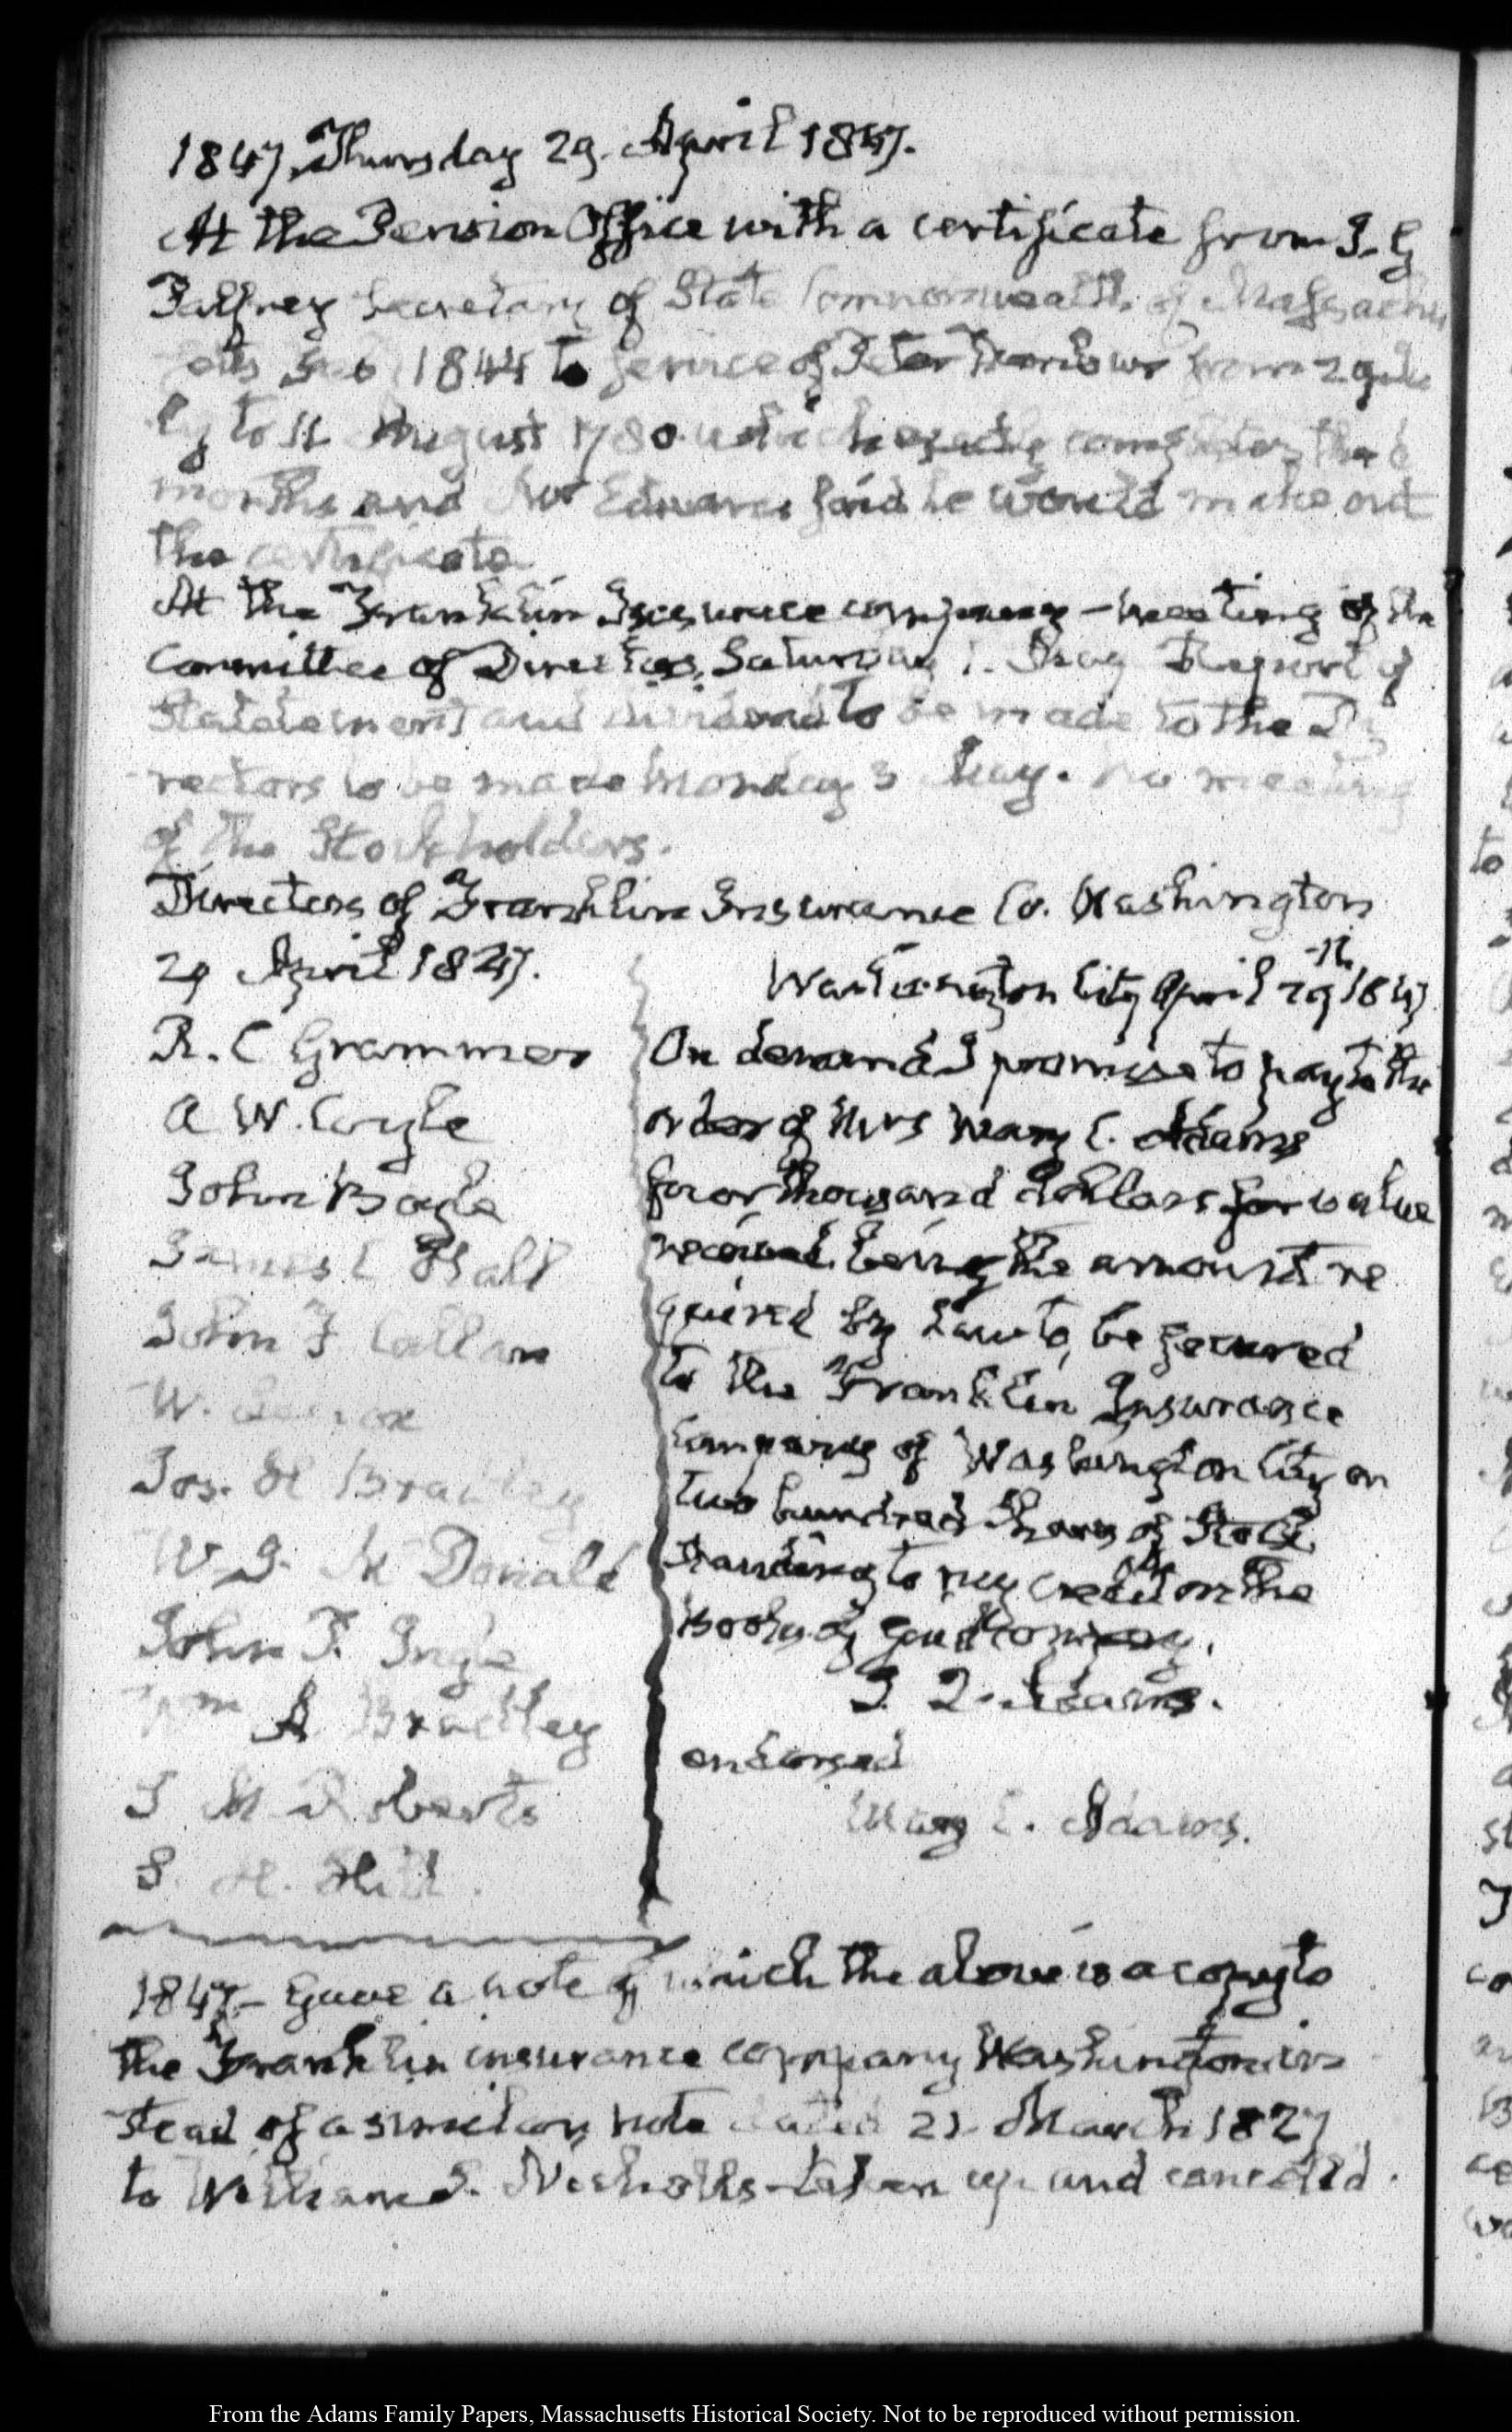 1847. Thursday 29. April 1847.
At the Pension Office with a certificate from J. G
Palfrey Secretary of State Commonwealth of Massachu
setts 1844 to service of Peter from 29 Ju
ly to 11 August 1780. which exactly completes the 6
months and Mr Edwards said he would make out
the certificate
At the Franklin Insurance company - meeting of the
Committee of Directors, Saturday 1. May Report of
Statement and dividend to be made to the Di
rectors to be made Monday 3 May. No meeting
of the Stockholders.
Directors of Franklin Insurance Co. Washington
29 April 1847.
R. C Grammer
A W. Coyle
John Boyle
James C Hall
John F Callan
W. Lenox
Jos. H Bradley
W. J. Mc Donald
John P. Ingle
Wm A Bradley
J M Roberts
S. H. Hill.
Washington City April 29th 1847
On demand I promise to pay to the
order of Mrs Mary C. Adams
four thousand dollars for value
received being the amount re
quired by Law to be secured
to the Franklin Insurance
Company of Washington City on
two hundred Shares of Stock
standing to my credit on the
Books of said Company.
J. Q. Adams.
endorsed
Mary C. Adams.
1847 - Gave a note of which the above is a copy to
the Franklin insurance company Washington in
stead of a similar note dated 21. March 1827
to William S. Nicholls - taken up and cancell'd.
From the Adams Family Papers, Massachusetts Historical Society. Not to be reproduced without permission.